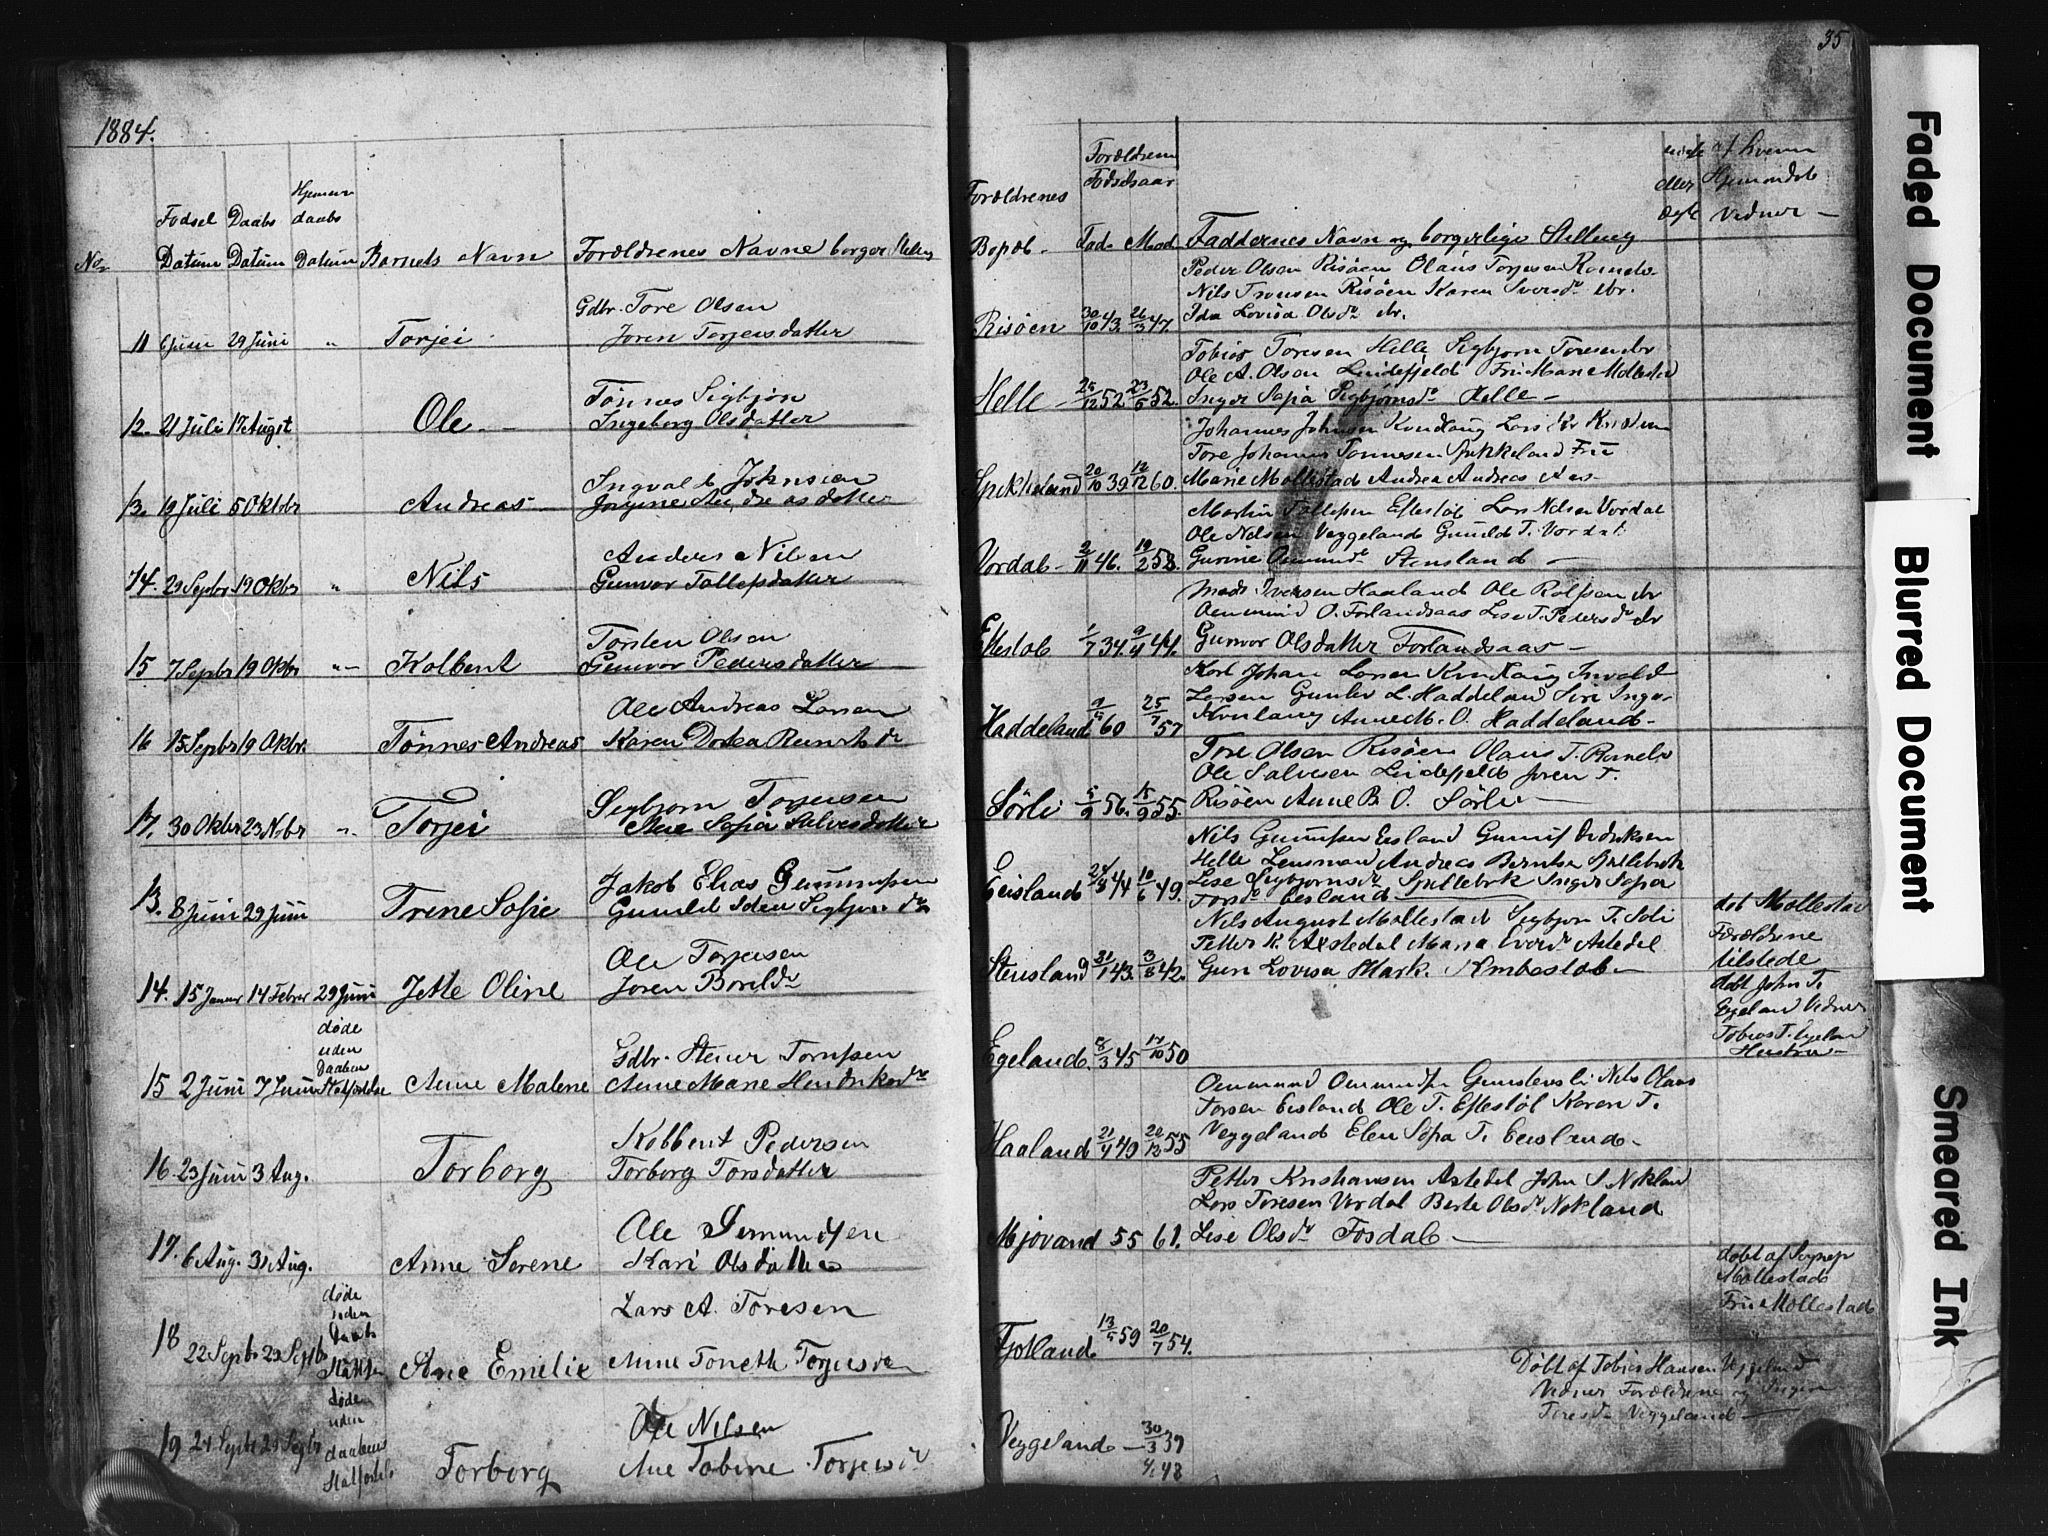 35
1884.
No
Fodsel Datum
Daabs Datum
Hjemme daabs Datum
Barnets Navn
Forældrenes Navne borger Stelling
Forældrenes Bopæl
Forældrene Fodselsaar
Fad. Mod.
Faddernes Navn og borgerlige Stelling
eller
af hvem Hjemmedøbt
Vedner
11 6 Juni 29 Juni " Torjei
Gdbr. Tore Olsen
Joren Torjersdatter
Risöen 30/10 43. 26/3 47.
Peder Olsen Risöen Olaus Torjesen
Nils Tronsen Risöen Karen
Ida Lovisa Olsdr
12. 21 Juli 17 August Ole
Tönnes Sigbjön
Ingeborg Olsdatter
Helle 25/12 52 23/5 52.
Tobias Toresen Helle Sigbjorn Toresen
Ole A. Olsen Lindefjeld Frú Marie Mollestad
Inger Sofia Sigbjörnsdr Helle
13. 19 Juli 5 Oktbr Andreas
Ingvald Johnsen
Jorgine Andreasdatter
Spikkeland 20/10 39 12/12 60.
Johannes Johnsen Kvinlaug Lars
Tore Johannes Tonnesen Spikkeland Frú
Marie Mollestad Andrea Andreas
14. 29 Septbr 19 Oktbr " Nils
Anders Nilsen
Gunvor Tallefsdatter
Vordal 2/11 46. 19/2 58.
Martin Tallefsen Eftestöl Lars Nilsen Vordal
Ole Nilsen Veggeland Gunild T. Vordal
Gurine Stensland
15. 7 Septbr 19 Oktbr " Kolbent
Torsten Olsen
Gunvor Pedersdatter
Eftestöl 1/7 34. 9/4 44.
Mads Iversen Haaland Ole Rolfsen
Ommund O. Forlandsaas Lise T. Pedersdr
Gunvor Olsdatter Forlandsaas
16 15 Septbr 19 Oktbr. Tönnes Andreas
Ole Andreas Larsen
Karen Dortea
Haddeland 9/5 60 25/7 57
Karl Johan Larsen Kvinlaug
Larsen Gunlev L. Haddeland Siri Inger
Kvinlaug Anne M. O. Haddeland
17. 30 Oktbr 23 Nobr " Torjei
Sigbjorn Torjersen
Ane Sofia Salvesdatter
Sörli 5/9 56. 15/9 55.
Tore Olsen Risöen Olaus T.
Ole Salvesen Lindefjeld Joren T.
Risöen Anne B. O. Sörli
13. 8 Juni 29 Juni Trene Sofie
Jakob Elias Gunnufsen
Gunild Iden Sigbjörnsdr
Eeisland 24/8 44 10/6 49.
Nils Gunnufsen Eisland Gunuf Dideriksen
Helle Lensmand Andreas Berntsen
Lise Sigbjornsdr Spillebrok Inger Sofia
Torsdr Eeisland
14. 15 Januar 14 Febrer 29 Juni Jette Oline
Ole Torjersen
Joren Borildr
Stensland 31/1 43. 3/8 42.
Nils August Mollestad Sigbjorn T. Soli
Petter K. Axstedal Maria Iversdr Astedel
Guri Lovisa Stark.
døb Mollestad
Forældrene tilstede
15 2 Juni 7 Juni døde uden Daaben Anne Malene
Gdbr. Stener Tornfsen
Anne Marie Hendriksdr
Egeland. 8/3 45 14/10 50
døbt John T.
Egeland Vedner
Tobias T. Egelan
Hustru
16. 23 Juni 3 Aug. Torborg
Kobbent Pedersen
Torborg Torsdatter
Haaland 21/4 49 20/12 55
Ommund Ommundsen Nils Olaus
Torsen Eisland Ole T. Eftestöl Karen T.
Veggeland Elen Sofa T. Eeisland
17. 6 Aug. 31 Aug. Anne Serene
Ole Semundsen
Kari Olsdatter
Mjovand 55 61.
Petter Kristiansen Astedel John S. Nokland
Lars Toresen Vordal Berte Olsdr Nokland
Lise Olsdr Fosdal
18 22 Septbr 29 Septbr døde uden Daab Ane Emilie
Lars A. Toresen
Anne Toneth Torjersdr
Fjotland 13/5 59 20/7 54.
døbt af
Mollestad
Frú Mollestad
19 24 Septbr 29 Septbr døde uden daaben Torborg
Ole Nilsen
Ane Tobine Torjersdr
Veggeland 30/3 39
48
Døbt af Tobias Hansen Veggeland
Vedner Forældrene og Inger
Toresdr Veggeland
Faded Document
Blurred Document
Smeared Ink